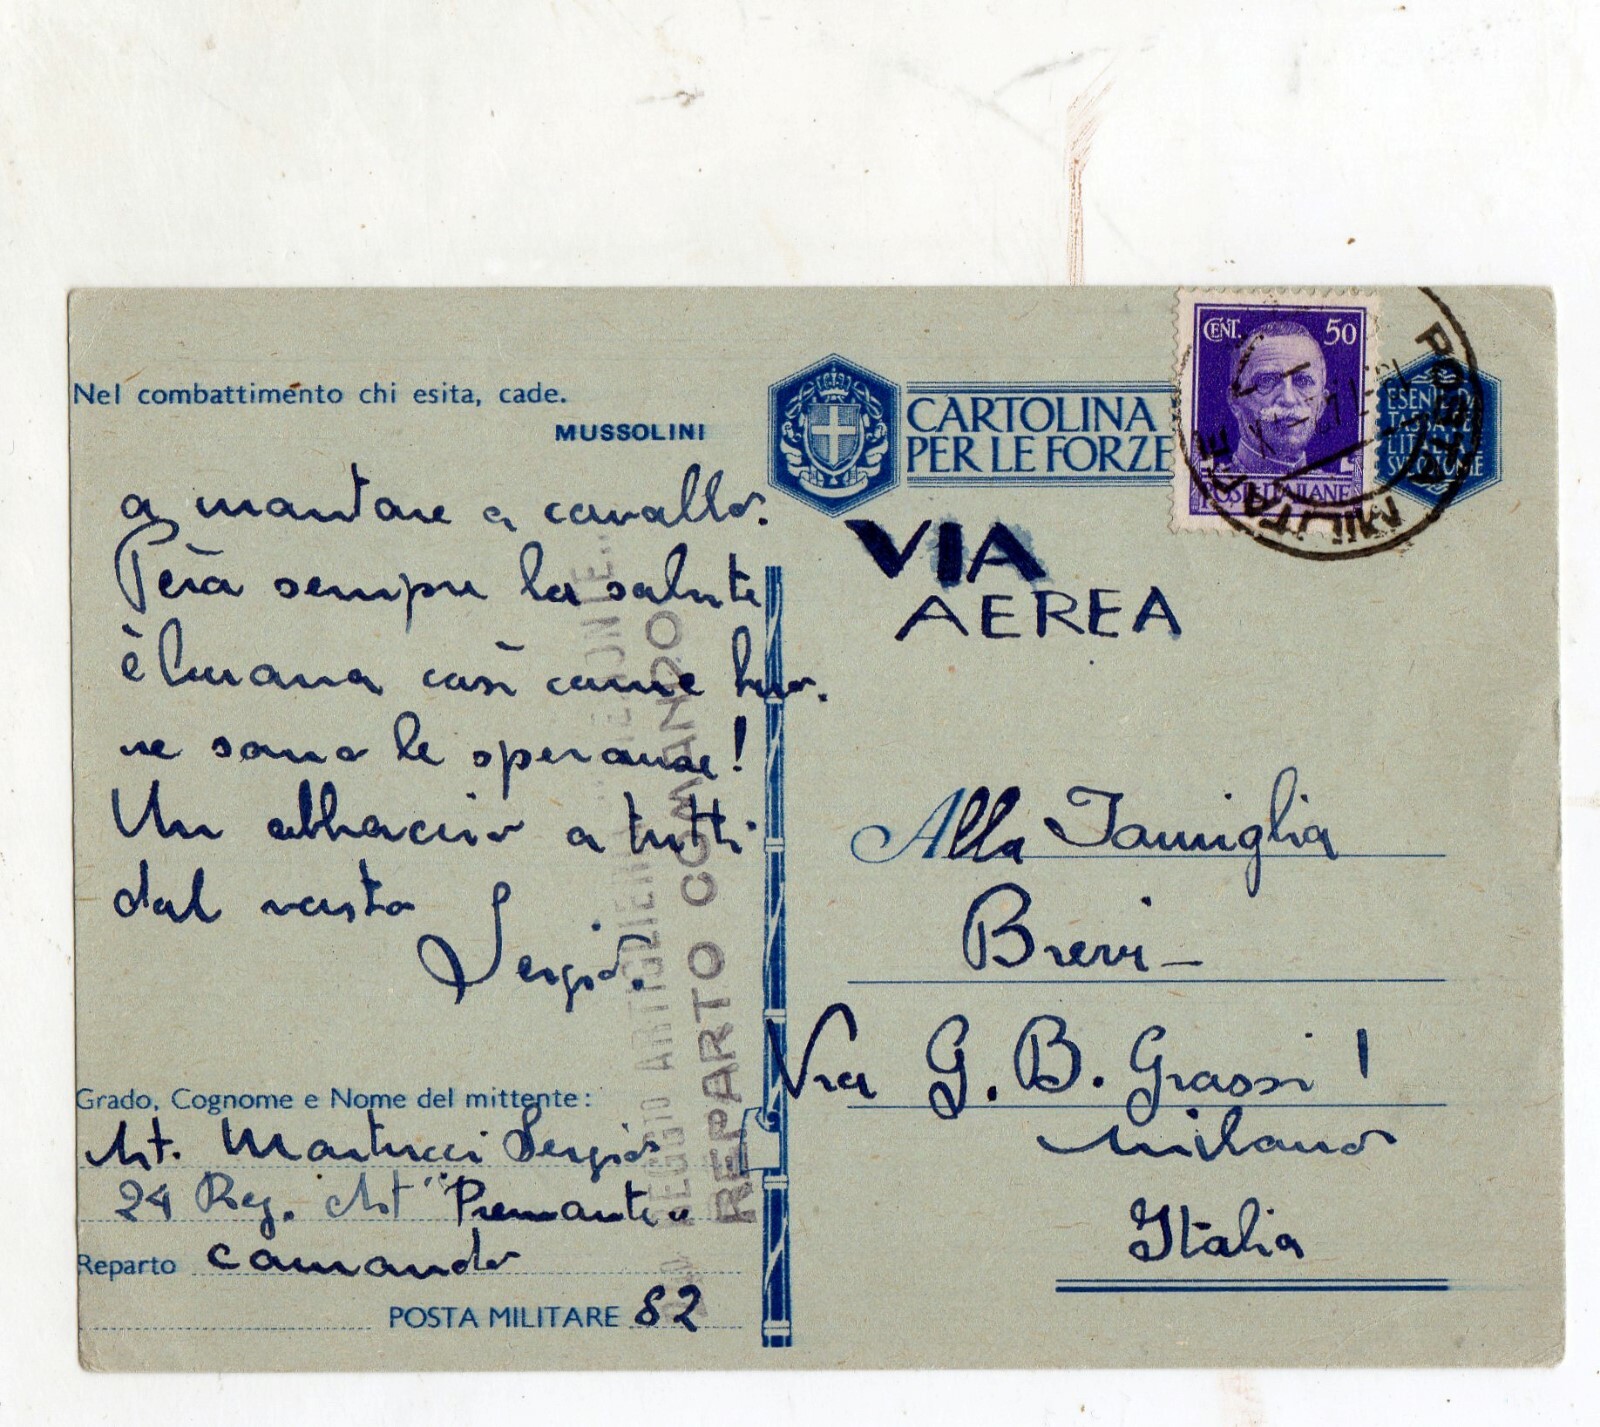 Nel combattimento chi esita, cade.
MUSSOLINI
a montare a cavallo.
Però sempre la salute
è buona così come buo.
ne sono le speranze!
Un abbraccio a tutti
dal vostro
Sergio.
Grado, Cognome e Nome del mittente:
Art. Martucci Sergio
24 Reg. Art "Piemonte"
Reparto comando
POSTA MILITARE 82
REGGIO ARTIGLIERIA
REPARTO COMANDO
CARTOLINA
PER LE FORZE
CENT. 50
POSTE ITALIANE
POSTA MILITARE
ESENTE DA
VIA
AEREA
Alla Famiglia
Brevi -
Via G. B. Grassi 1
Milano
Italia